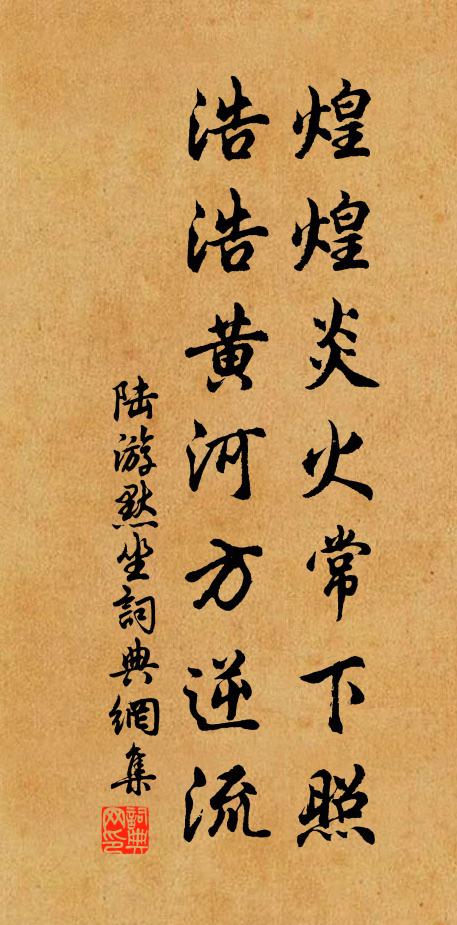 煌煌炎火常下照
浩浩黄河方逆流
陆游默坐詞典網集
詞典网印